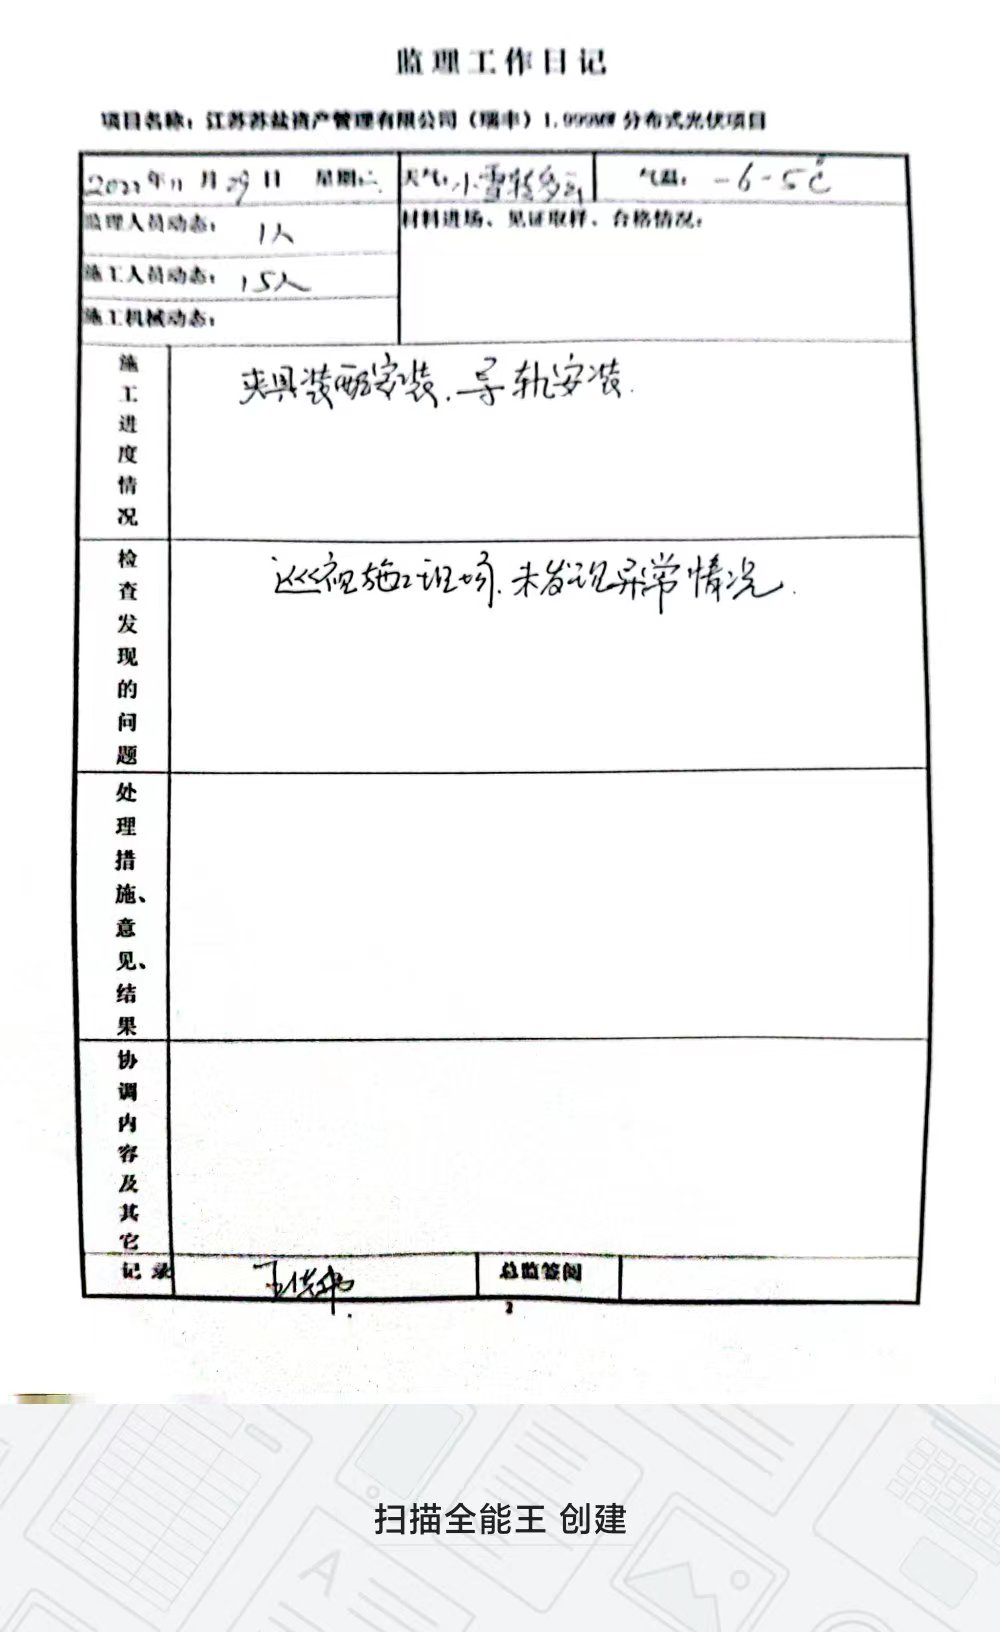 监理工作日记
项目名称：江苏苏盐资产管理有限公司（瑞丰）1.999MW 分布式光伏项目
2022年11月29日 星期：二 天气：小雪转多云 气温：-6-5℃
监理人员动态： 1人 材料进场、见证取样、合格情况：
施工人员动态： 15人
施工机械动态：
施工进度情况
夹具装配安装．导轨安装．
检查发现的问题
巡视施工现场．未发现异常情况．
处理措施、意见、结果
协调内容及其它
记录 总监签阅
2
扫描全能王 创建